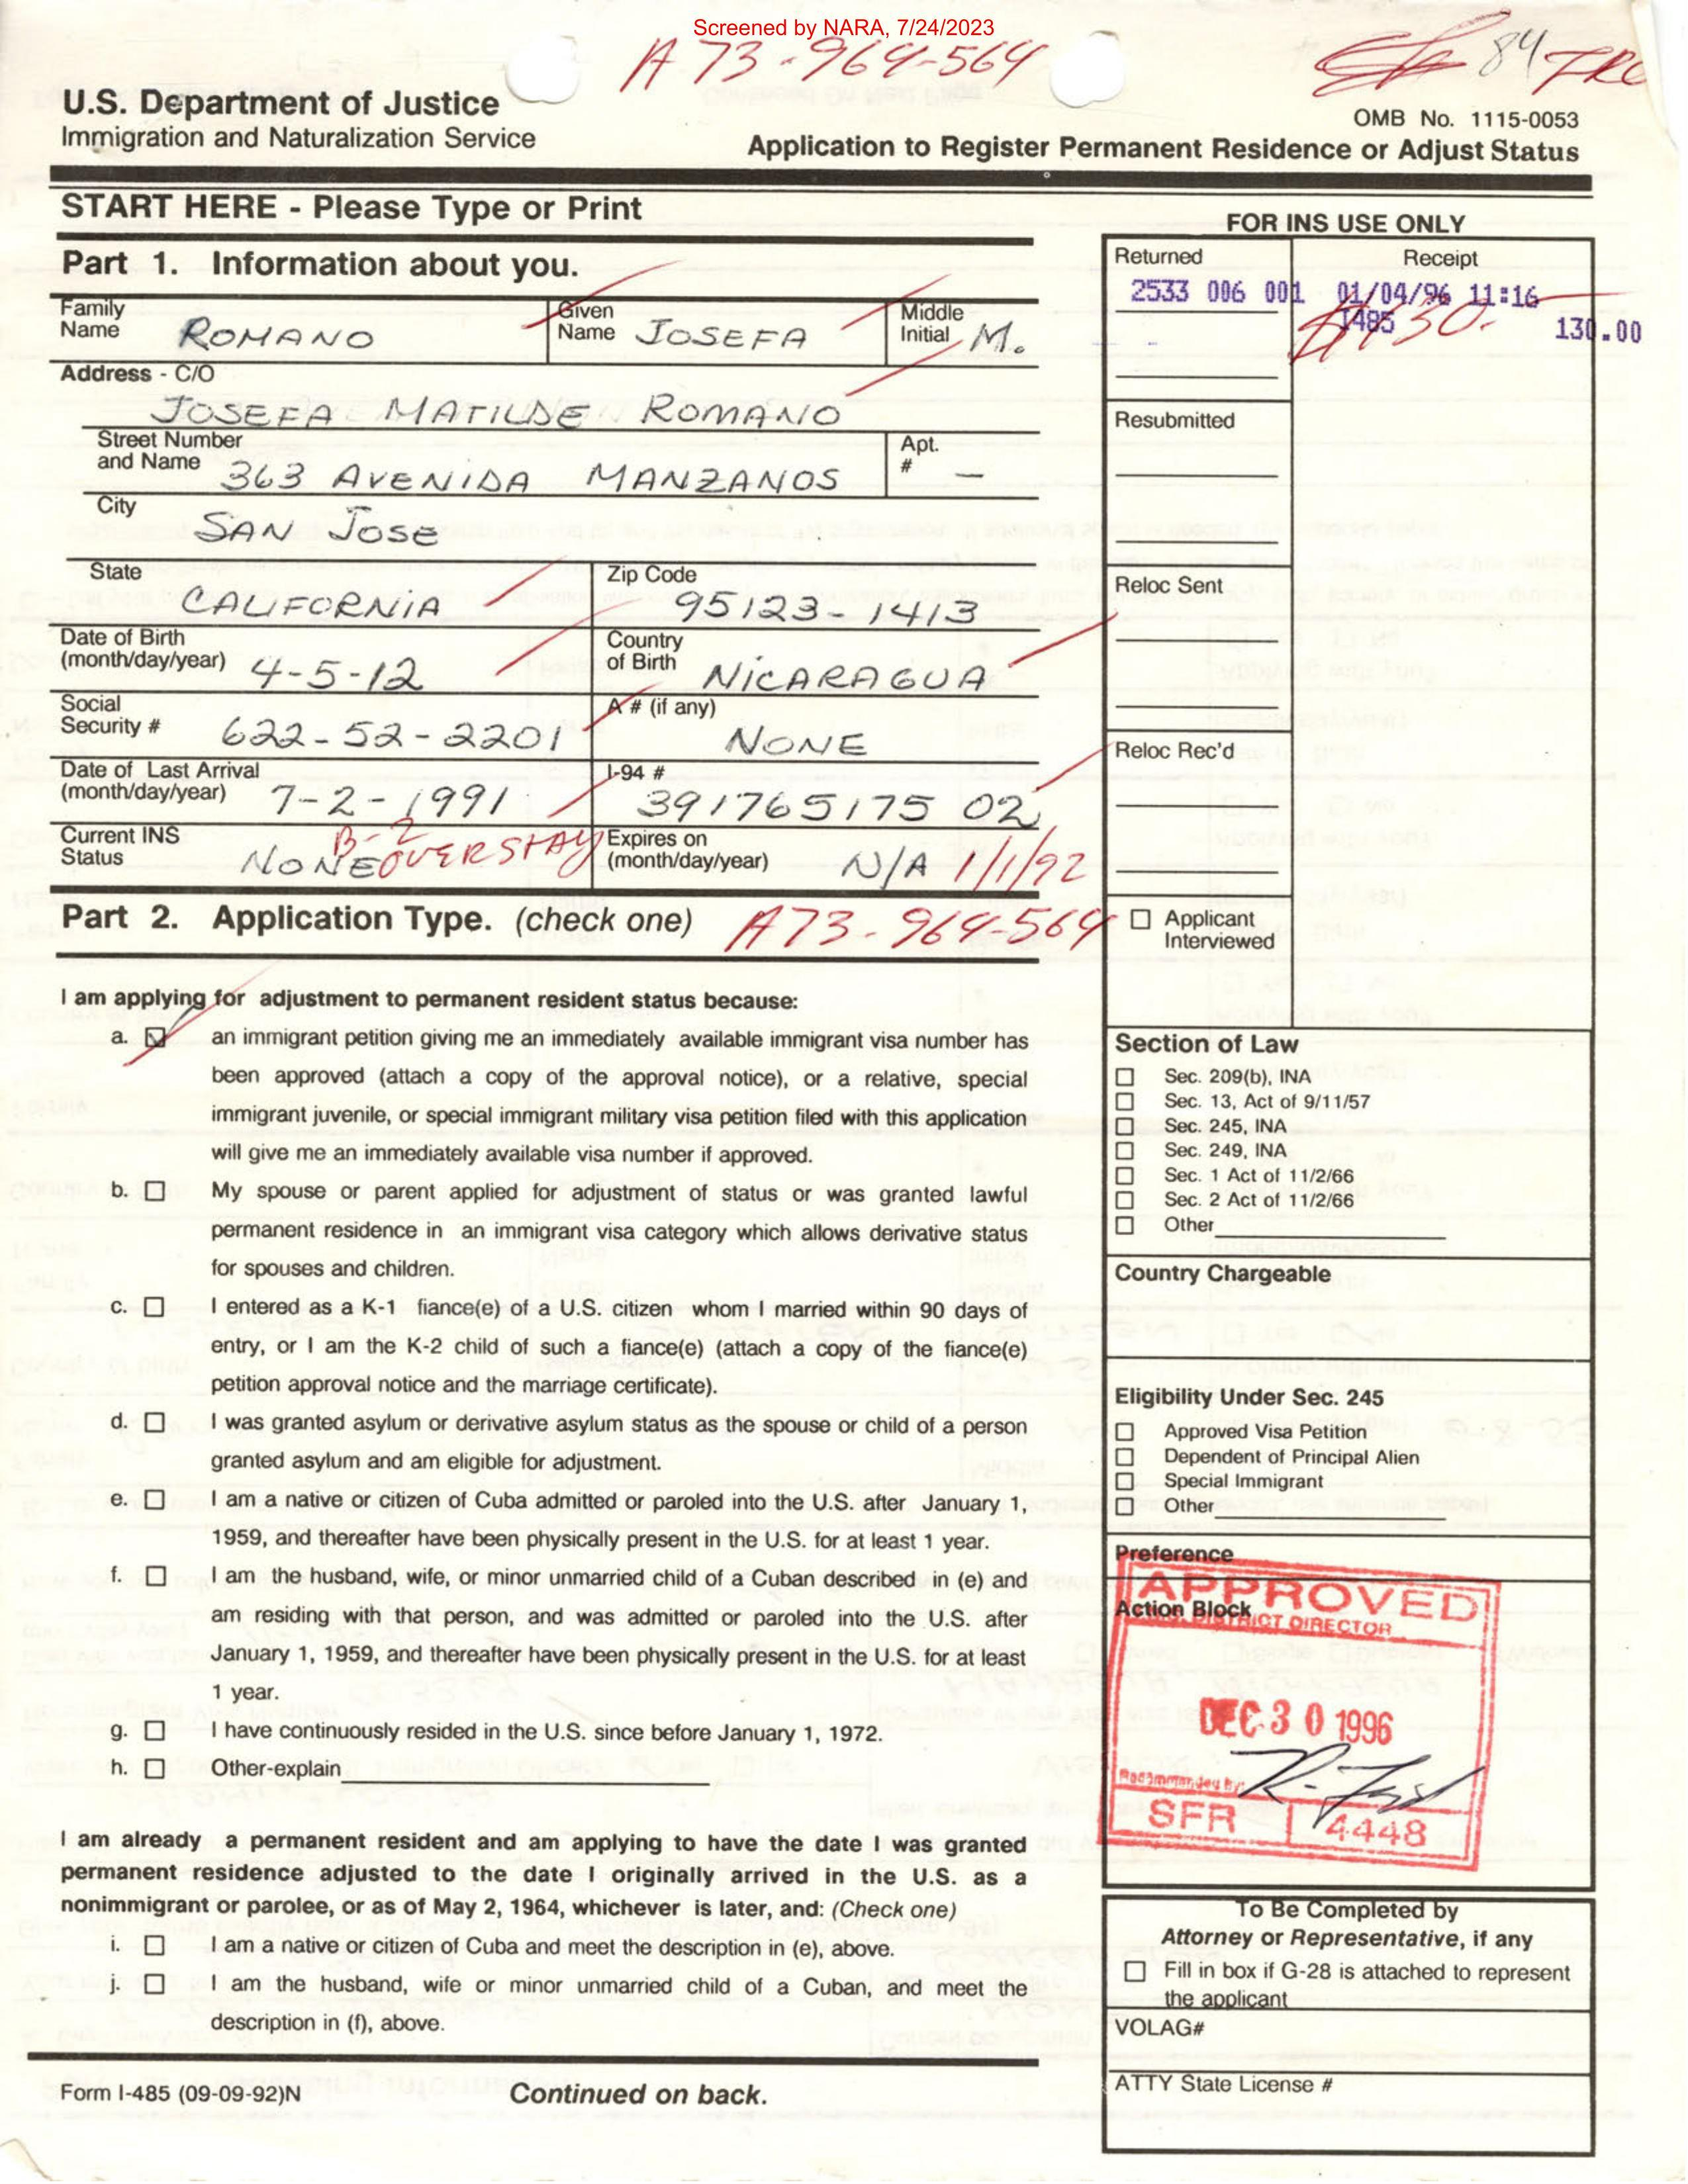 Screened by NARA, 7/24/2023
A 73-964-564
84
U.S. Department of Justice
Immigration and Naturalization Service
OMB No. 1115-0053
Application to Register Permanent Residence or Adjust Status
START HERE - Please Type or Print
FOR INS USE ONLY
Part 1. Information about you.
Family Name ROMANO
Given Name JOSEFA
Middle Initial M.
Address - C/O
JOSEFA MATILDE ROMANO
Street Number and Name 363 AVENIDA MANZANOS
Apt. # —
City
SAN JOSE
State
CALIFORNIA
Zip Code
95123-1413
Date of Birth (month/day/year) 4-5-12
Country of Birth NICARAGUA
Social Security # 622-52-2201
A # (if any)
NONE
Date of Last Arrival (month/day/year) 7-2-1991
I-94 #
391765175 02
Current INS Status NONE B-2 OVERSTAY
Expires on (month/day/year) N/A 1/1/92
Part 2. Application Type. (check one) A73-964-564
I am applying for adjustment to permanent resident status because:
a. an immigrant petition giving me an immediately available immigrant visa number has
been approved (attach a copy of the approval notice), or a relative, special
immigrant juvenile, or special immigrant military visa petition filed with this application
will give me an immediately available visa number if approved.
b. My spouse or parent applied for adjustment of status or was granted lawful
permanent residence in an immigrant visa category which allows derivative status
for spouses and children.
c. I entered as a K-1 fiance(e) of a U.S. citizen whom I married within 90 days of
entry, or I am the K-2 child of such a fiance(e) (attach a copy of the fiance(e)
petition approval notice and the marriage certificate).
d. I was granted asylum or derivative asylum status as the spouse or child of a person
granted asylum and am eligible for adjustment.
e. I am a native or citizen of Cuba admitted or paroled into the U.S. after January 1,
1959, and thereafter have been physically present in the U.S. for at least 1 year.
f. I am the husband, wife, or minor unmarried child of a Cuban described in (e) and
am residing with that person, and was admitted or paroled into the U.S. after
January 1, 1959, and thereafter have been physically present in the U.S. for at least
1 year.
g. I have continuously resided in the U.S. since before January 1, 1972.
h. Other-explain
I am already a permanent resident and am applying to have the date I was granted
permanent residence adjusted to the date I originally arrived in the U.S. as a
nonimmigrant or parolee, or as of May 2, 1964, whichever is later, and: (Check one)
i. I am a native or citizen of Cuba and meet the description in (e), above.
j. I am the husband, wife or minor unmarried child of a Cuban, and meet the
description in (f), above.
Form I-485 (09-09-92)N
Continued on back.
Returned
Receipt
2533 006 001 01/04/96 11:16
I485 130.00
$130.
Resubmitted
Reloc Sent
Reloc Rec'd
Applicant Interviewed
Section of Law
Sec. 209(b), INA
Sec. 13, Act of 9/11/57
Sec. 245, INA
Sec. 249, INA
Sec. 1 Act of 11/2/66
Sec. 2 Act of 11/2/66
Other
Country Chargeable
Eligibility Under Sec. 245
Approved Visa Petition
Dependent of Principal Alien
Special Immigrant
Other
Preference
APPROVED
Action Block
DISTRICT DIRECTOR
DEC 30 1996
Recommended By:
SFR 4448
To Be Completed by
Attorney or Representative, if any
Fill in box if G-28 is attached to represent
the applicant
VOLAG#
ATTY State License #